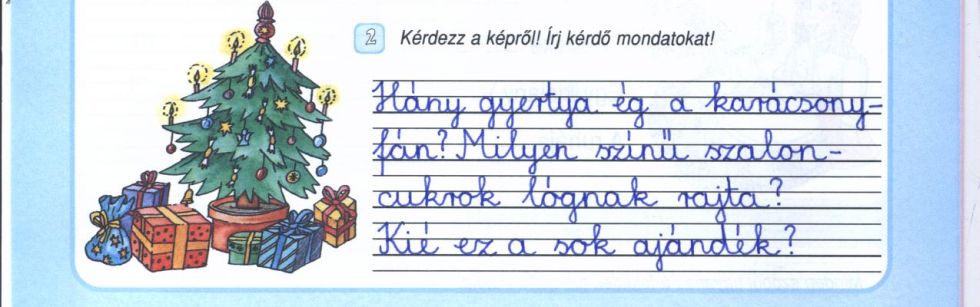 2 Kérdezz a képről! Írj kérdő mondatokat!
Hány gyertya ég a karácsony-
fán? Milyen színű szalon-
cukrok lógnak rajta?
Kié ez a sok ajándék?